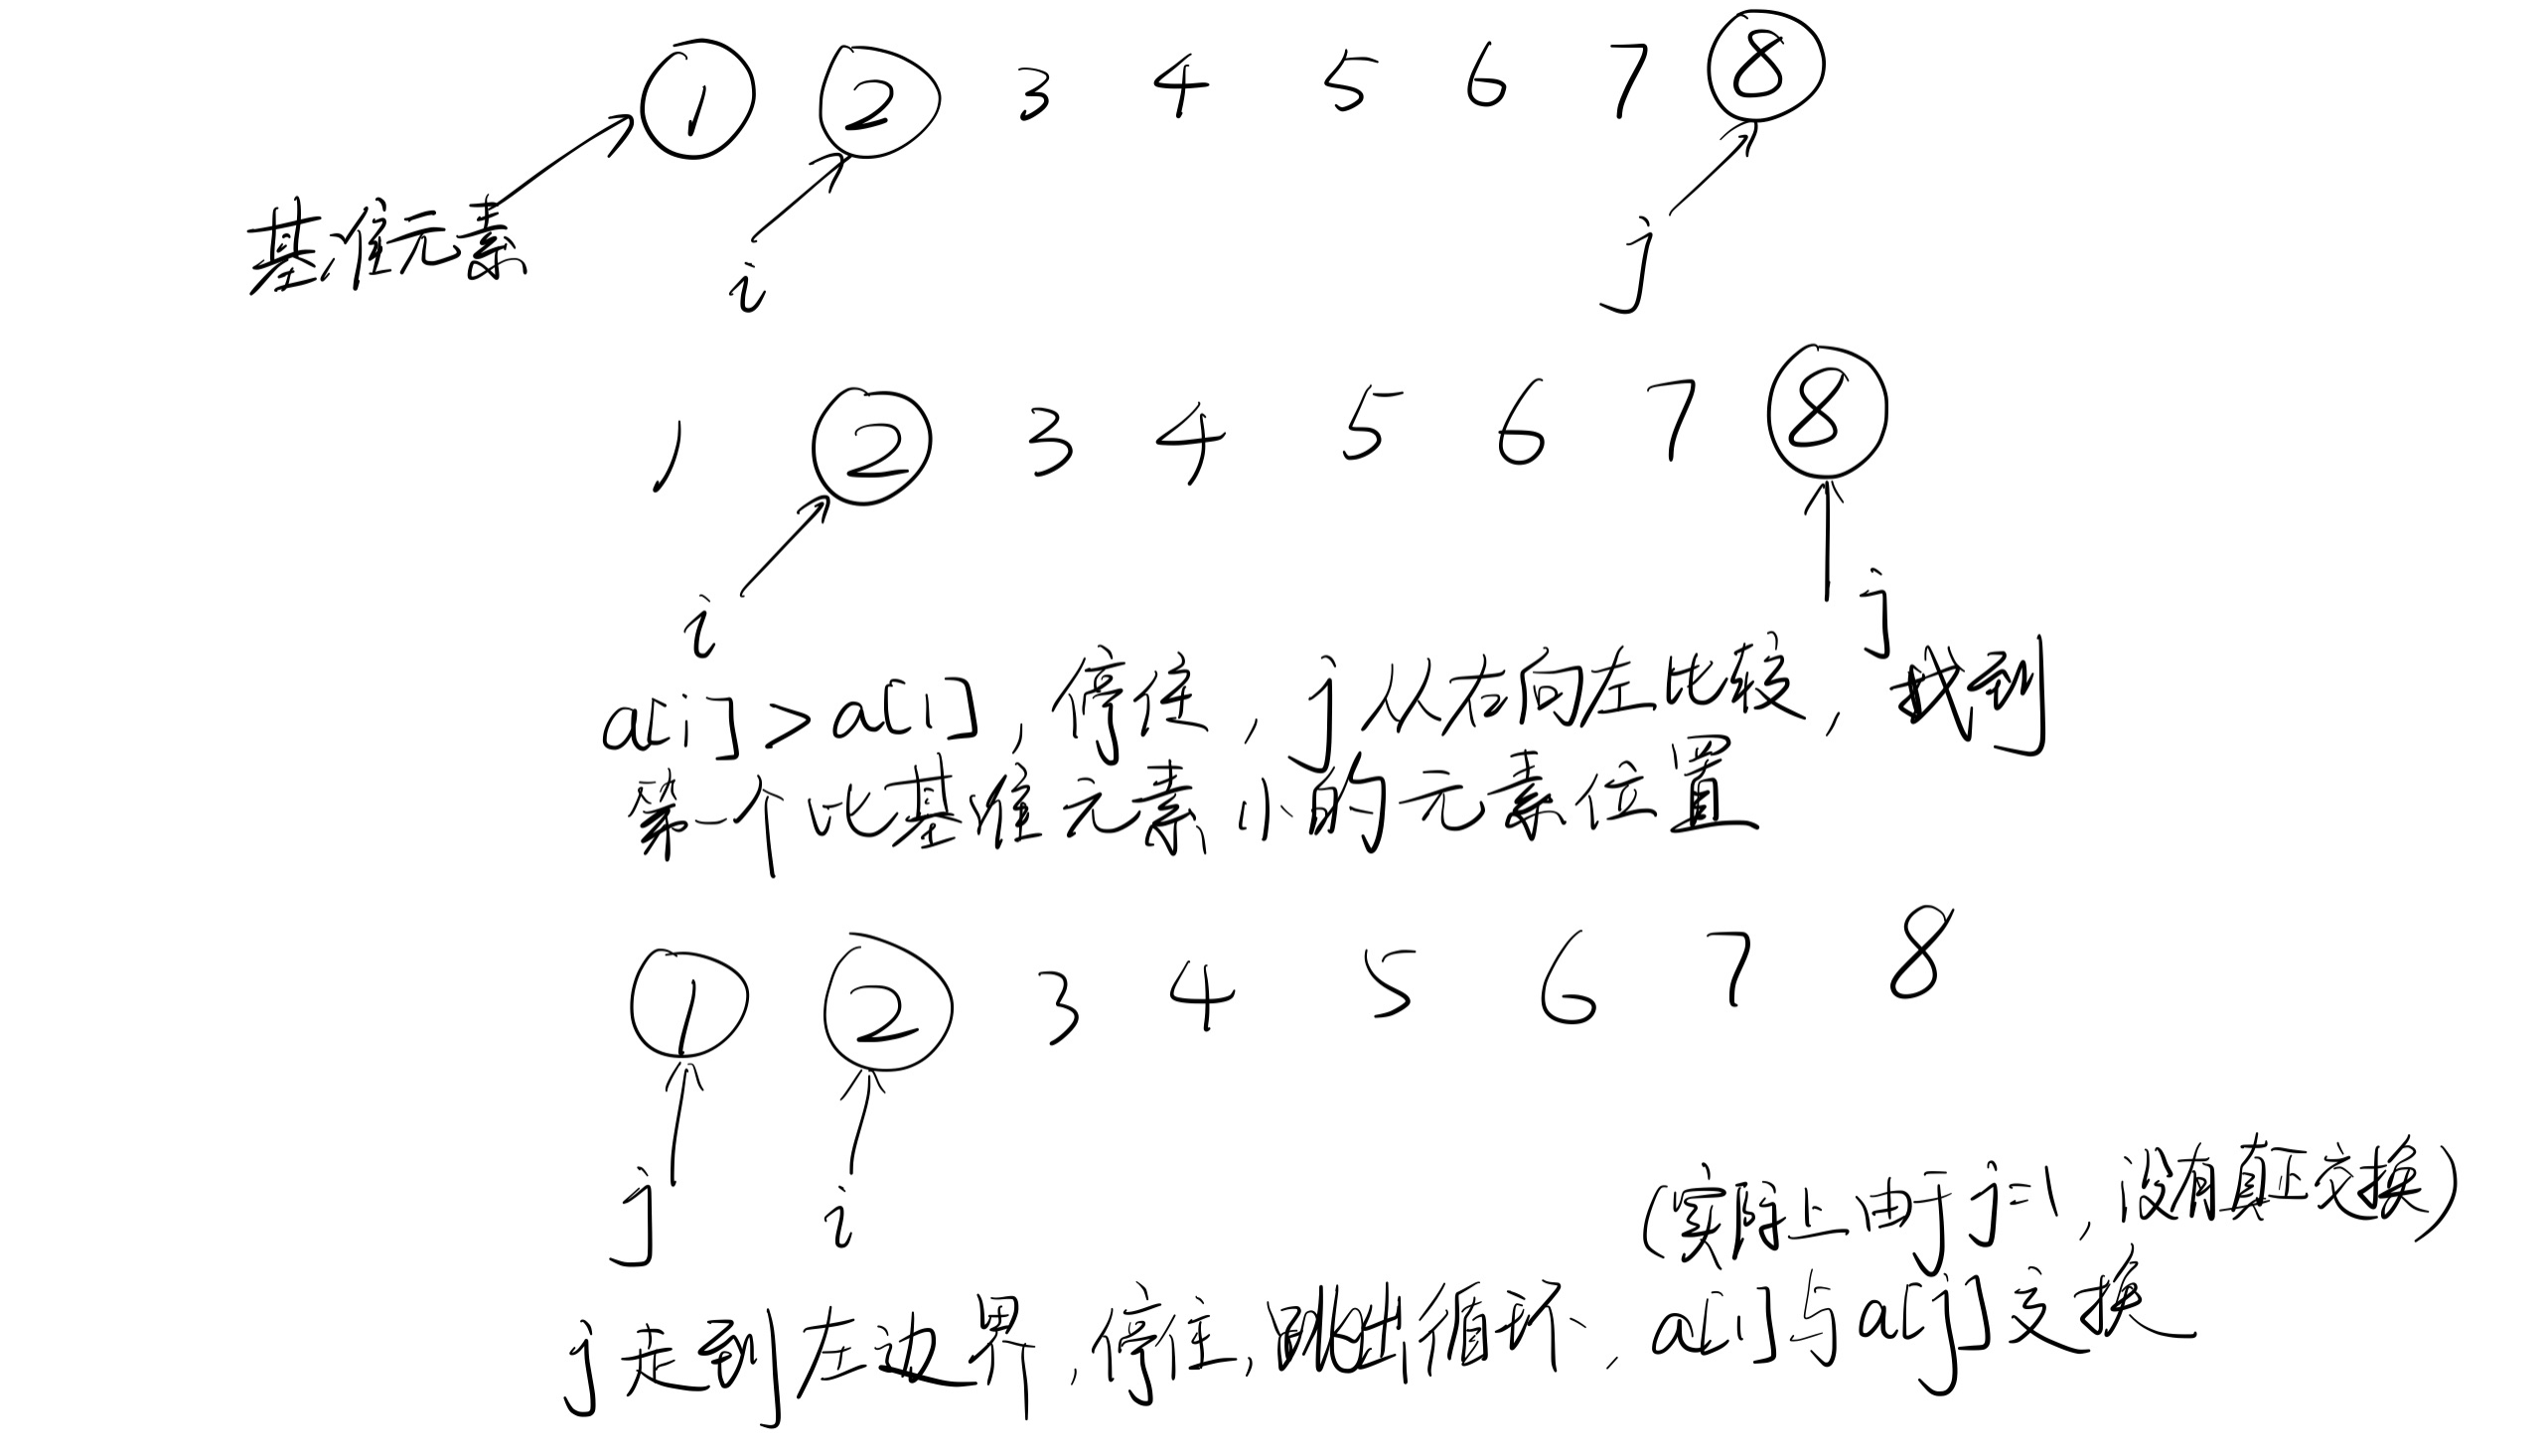 1 2 3 4 5 6 7 8
基准元素
i
j
1 2 3 4 5 6 7 8
i
j
a[i]>a[1],停住,j从右向左比较,找到
第一个比基准元素小的元素位置
1 2 3 4 5 6 7 8
j
i
(实际上由于j=1,没有真正交换)
j走到左边界,停住,跳出循环,a[1]与a[j]交换